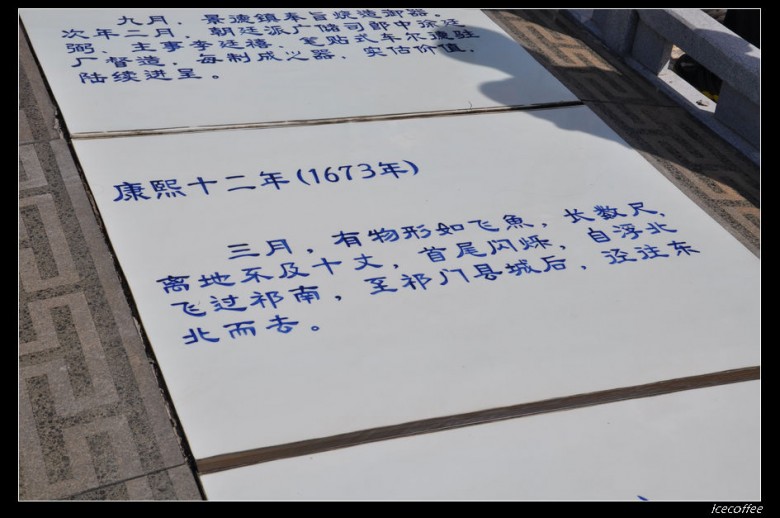 九月，景德镇奉旨烧造御器。
次年二月，朝廷派广储司郎中徐廷
弼、主事李廷禧、笔贴式车尔德驻
厂督造，每制成之器，实估价值，
陆续进呈。
康熙十二年(1673年)
三月，有物形如飞魚，长数尺，
离地不及十丈，首尾闪烁，自浮北
飞过祁南，至祁门县城后，迳往东
北而去。
Icecoffee